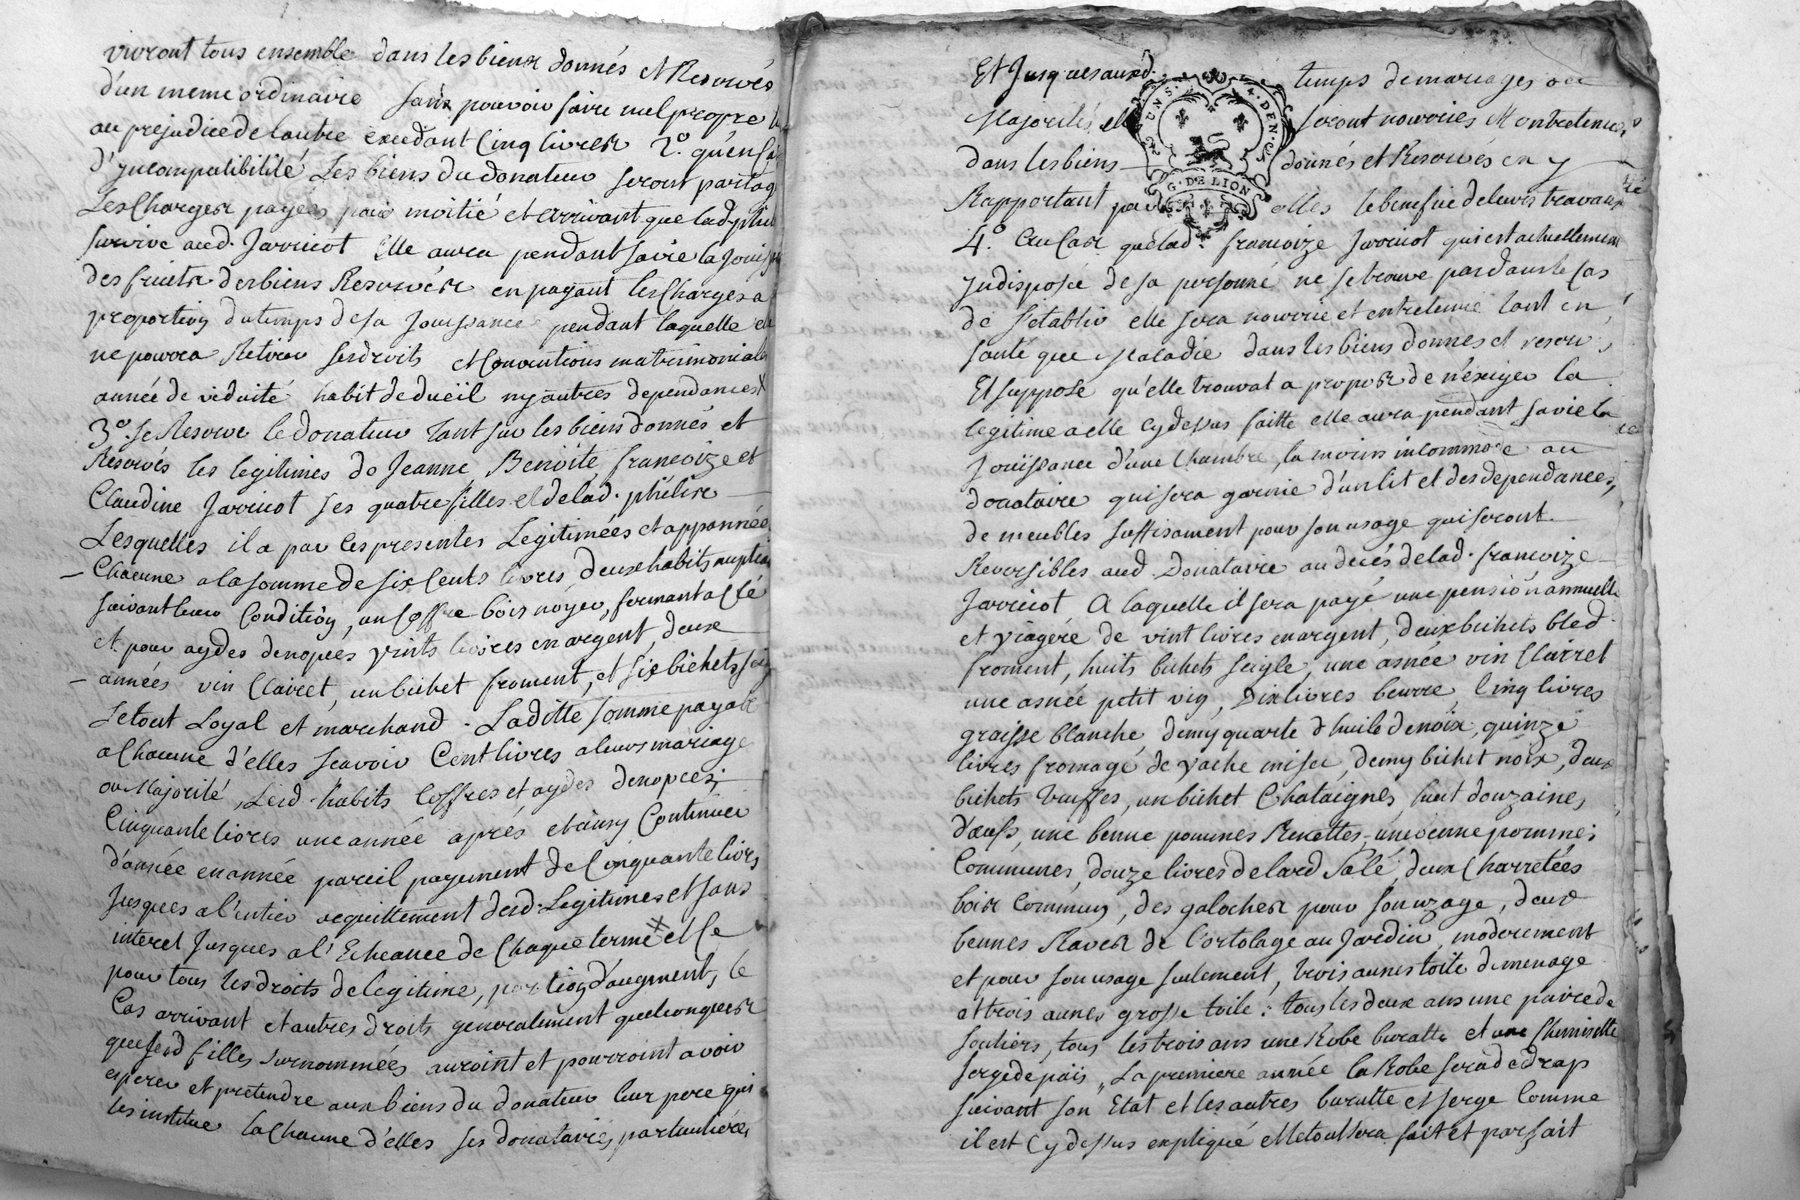 vivront tous ensemble dans les biens donnés et Reservés
d'un meme ordinaire sans pouvoir faire nul propre
au prejudice de lautre excedant Cinq livres 2.° qu'en Ca
d'yncompatibilité Les biens du donateur seront partag
Les Charges payées par moitié et arrivant que lad. phili
survive aud. Jarricot Elle aura pendant sa vie la Jouis
des fruits des biens Reservés en payant les Charges a
proportion du temps de sa Jouissance pendant laquelle el
ne poura Retirer ses droits et Conventions matrimoniale
année de viduité habit de dueil ny autres dependances
3.° se Reserve le donateur tant sur les biens donnés et
Reservés les legitimes de Jeanne Benoite francoize et
Claudine Jarricot ses quatre filles et de lad. phelise
Lesquelles il a par ces presentes Legitimées et appannée
Chacune a la somme de six Cents livres, deux habits nuptia
suivant leur Condition, un Coffre bois noyer, fermant a Clé
et pour aydes de nopces vints livres en argent, deux
années vin Clairet, un bichet froment, et six bichets sei
Le tout Loyal et marchand. Laditte somme payab
a Chacune d'elles scavoir Cent livres a leurs mariage
ou Majorité, Lesd. habits Coffres et aydes de nopces;
Cinquante livres une année après et ainsy Continuer
d'année en année pareil payement de Cinquante livres
Jusques a l'entier acquittement desd. Legitimes et sans
interet Jusques a l'Echeance de Chaque terme et Ce
pour tous les droits de legitime, portion d'augment, le
Cas arrivant et autres droits generalement quelconques
que lesd filles surnommées auroint et pourroint avoir
esperer et pretendre aux biens du donateur leur pere qui
les institue Chacune d'elles ses donataires particulieres
Et Jusques aux d. temps de mariages ou
Majorités, elles seront nourries et entretenues
dans les biens donnés et Reservés en y
Rapportant par elles le benefice de leurs travaux
G. DE LION
4.° Au Cas que lad. francoize Jarricot qui est actuellement
yndisposée de sa personne ne se trouve pas dans le Cas
de s'etablir elle sera nourrie et entretenue tant en
santé que Maladie dans les biens donnés et reserv
Et suppose qu'elle trouvat a propos de n'exiger la
legitime a elle Cy dessus faitte elle aura pendant sa vie la
Jouissance d'une Chambre, la moins incommode au
donataire qui sera garnie d'un lit et des dependances,
de meubles suffisament pour son usage qui seront
Reversibles aud Donataire au decés de lad. francoize
Jarricot A laquelle il sera payé une pension annuelle
et viagere de vint livres en argent, deux bichets bled
froment, huits bichets seigle, une asnée vin Clairet
une asnée petit vin, Dix livres beurre, Cinq livres
graisse blanche demy quarte d'huile de noix, quinze
livres fromage de vache demy bichet noix, deux
bichets truffes, un bichet Chataignes, huit douzaines
d'œufs, une benne pommes Renettes, une benne pommes
Communes, douze livres de lard Salé, deux Charretées
bois Commun, des galoches pour son uzage, deux
bennes Raves de l'ortolage au Jardin, moderement
et pour son usage seulement, trois aunes toile de menage
et trois aunes grosse toile: tous les deux ans une paire de
souliers, tous les trois ans une Robe buratte et une Chemisette
serge de païs, La premiere année la Robe sera de drap
suivant son Etat et les autres buratte et serge Comme
il est Cy dessus expliqué et le tout sera fait et parfait